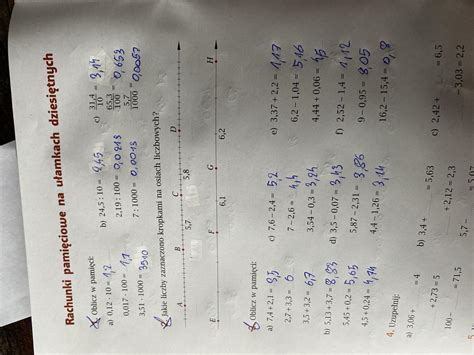 Rachunki pamięciowe na ułamkach dziesiętnych
Oblicz w pamięci:
a) 0,12 · 10 = 1,2 b) 24,5 : 10 = 2,45 c) 31,4/10 = 3,14
0,017 · 100 = 1,7 2,19 : 100 = 65,3/100 = 0,653
3,51 · 1000 = 3510 7 : 1000 = 5,7/ = 0,0057
Jakie liczby zaznaczono kropkami na osiach liczbowych?
A B C D
5,7 5,8
E F G H
6,1 6,2
Oblicz w pamięci:
a) 7,4 + 2,1 = 9,5 c) 7,6 – 2,4 = 5,2 e) 3,37 + 2,2 =
2,7 + 3,3 = 6 7 – 2,6 = 4,4 6,2 – 1,04 = 5,16
3,5 + 3,2 = 6,7 3,54 – 0,3 = 3,24 4,44 + 0,06 = 4,5
b) 5,13 + 3,7 = 8,83 d) 3,5 – 0,07 = 3,43 f) 2,52 – 1,4 = 1,12
5,45 + 0,2 = 5,65 5,87 – 2,31 = 9 – 0,95 = 8,05
4,5 + 0,24 = 4,74 4,4 – 1,26 = 3,14 16,2 – 15,4 = 0,8
4. Uzupełnij:
a) 3,06 + = 4 b) 3,4 + = 5,63 c) 2,42 + = 6,5
+ 2,73 = 5 + 2,12 = 2,3 – 3,03 = 2,2
100 – = 71,5 5,7 – = 5,07